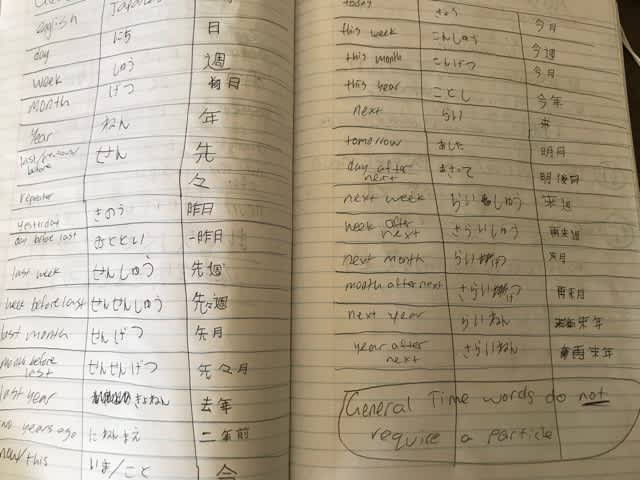 english Japanese
day にち 日
week しゅう 週
month げつ 毎日
year ねん 年
last/previous/before せん 先
repeater 々
yesterday きのう 昨日
day before last おととい 一昨日
last week せんしゅう 先週
week before last せんせんしゅう 先々週
last month せんげつ 先月
month before last せんせんげつ 先々月
last year きょねん 去年
years ago にねんまえ 二年前
now/this いま/こと 今
today きょう 今日
this week こんしゅう 今週
this month こんげつ 今月
this year ことし 今年
next らい 来
tomorrow あした 明日
day after next あさって 明後日
next week らいしゅう 来週
week after next さらいしゅう 再来週
next month らいげつ 来月
month after next さらいげつ 再来月
next year らいねん 来年
year after next さらいねん 再来年
General Time words do not
require a particle